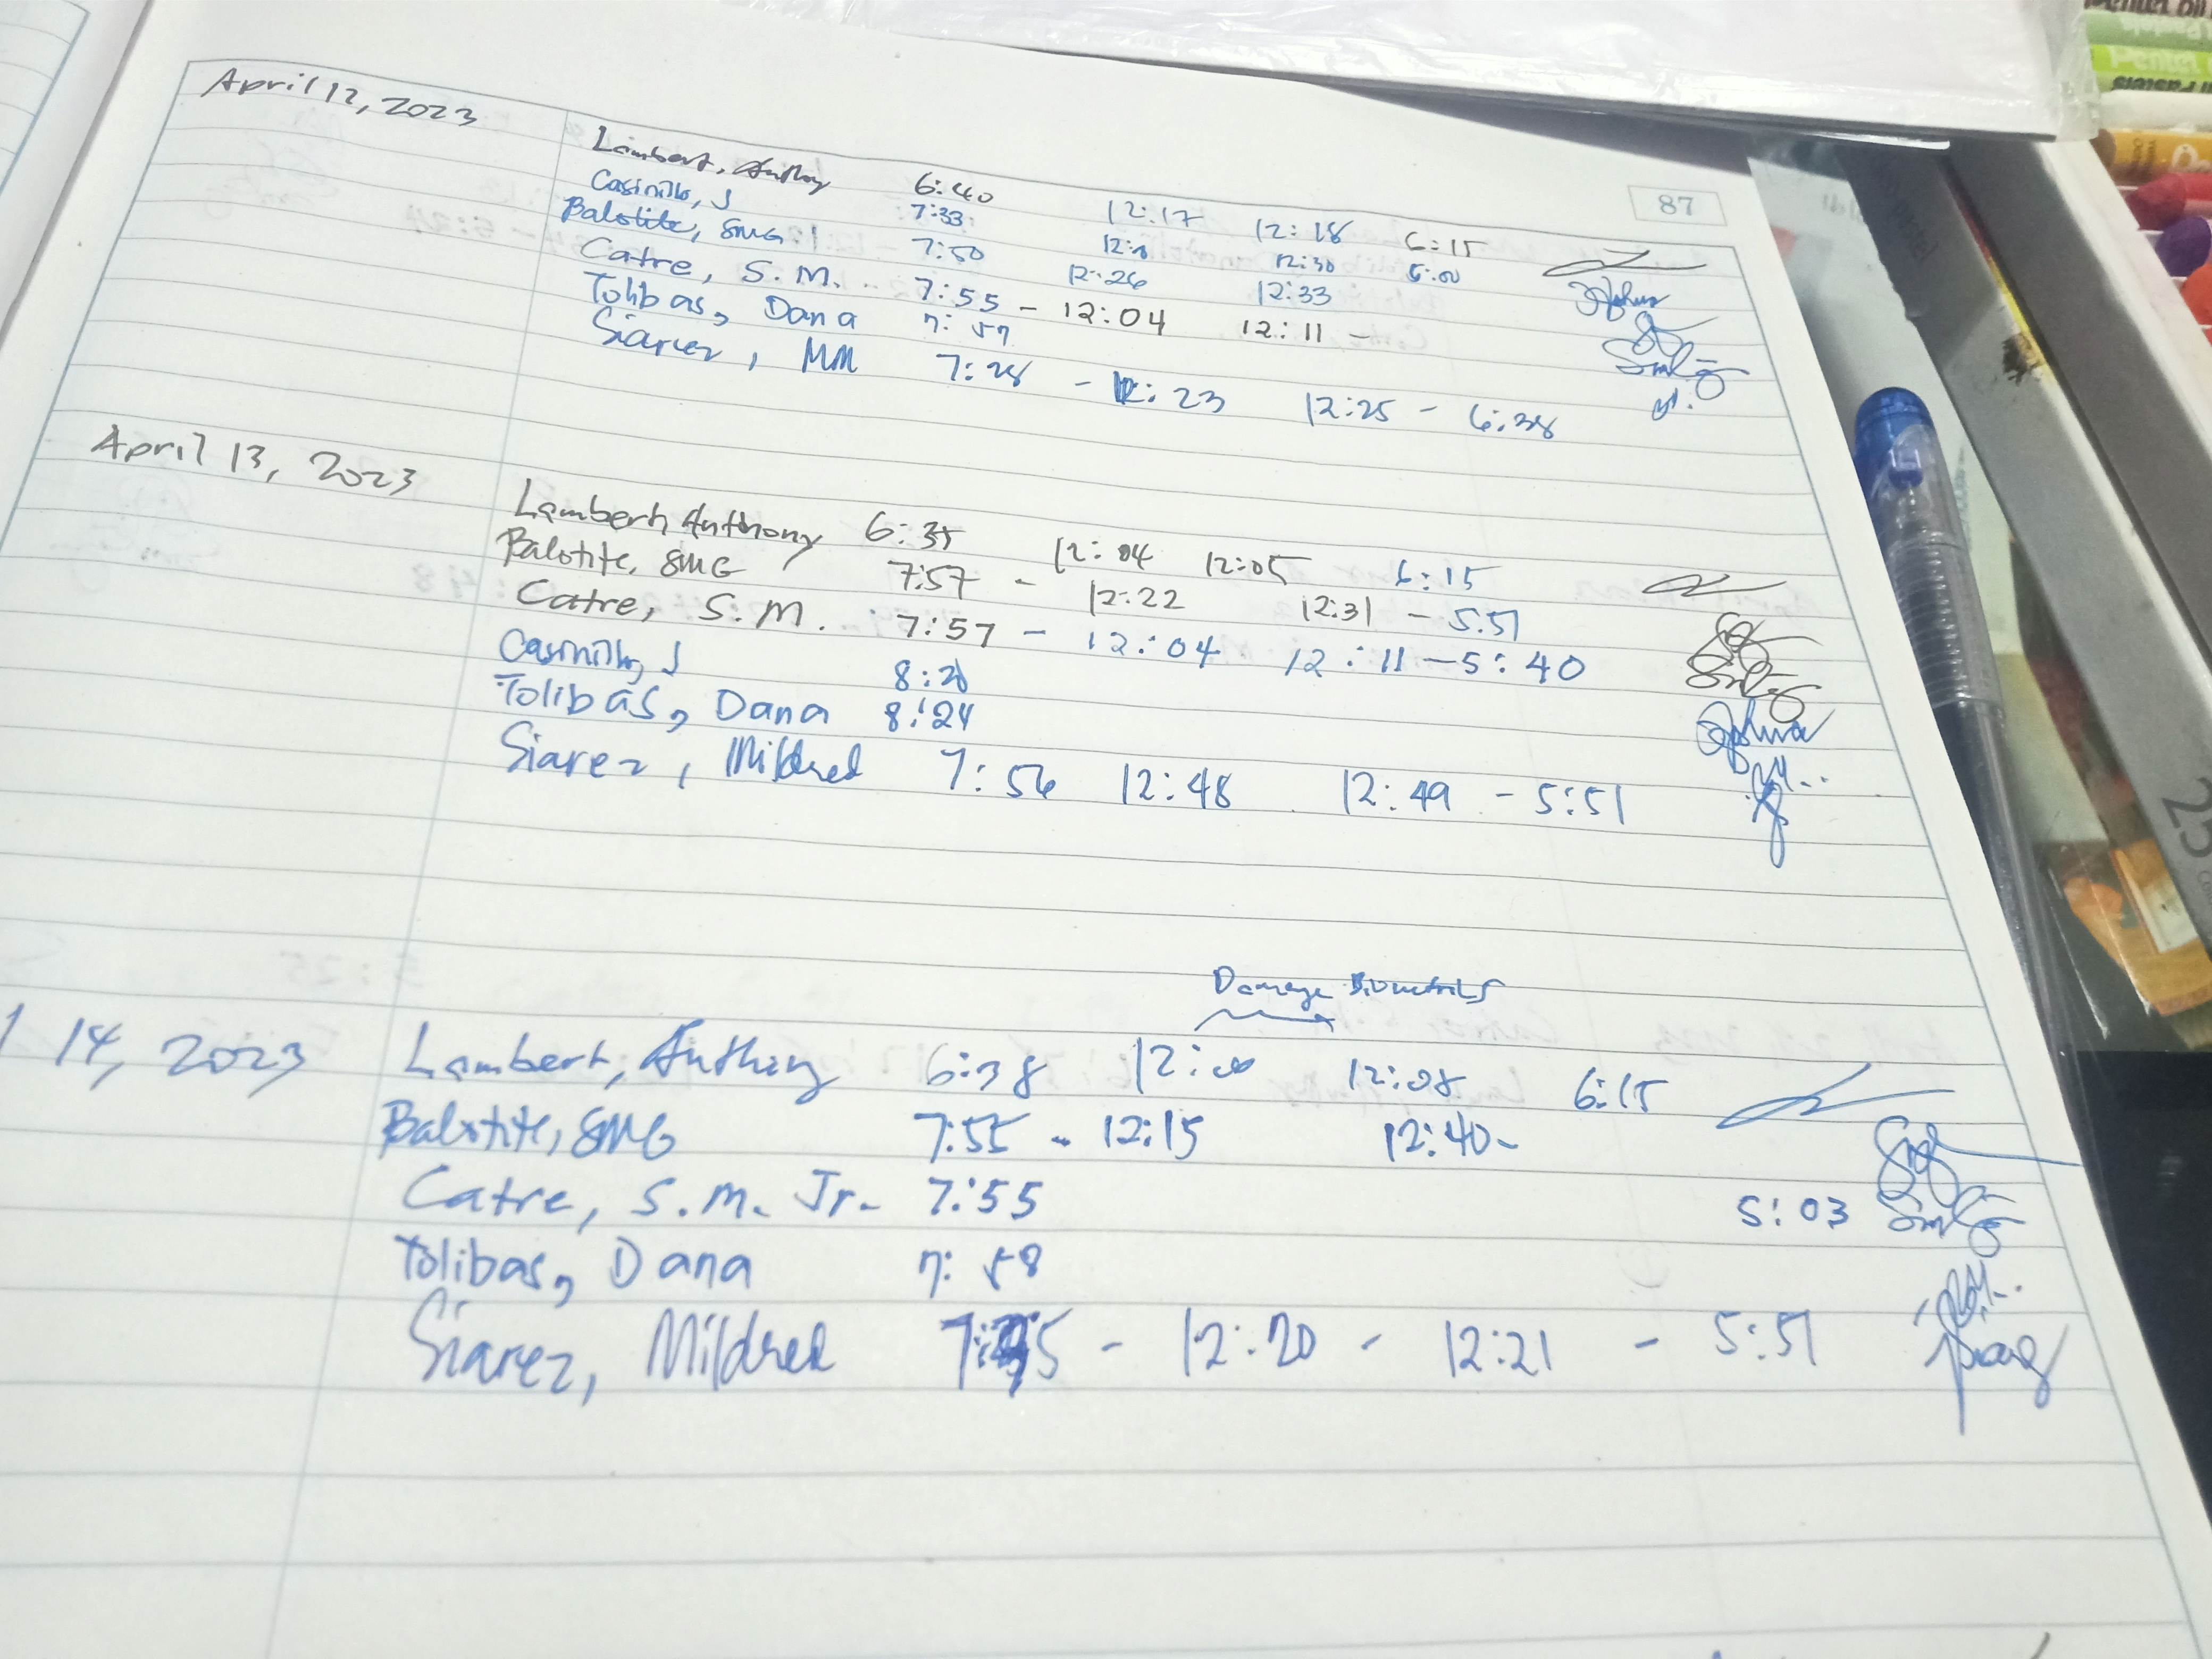 87
April 12, 2023
Lambert, Anthony 6:40 12:17 12:18 6:15
Casinillo, J 7:33 12:30 5:00
Balotite, SMG 7:50 12:26 12:33
Catre, S.M. 7:55 - 12:04 12:11 -
Tolibas, Dana 7:57
Siarez, MM 7:28 - 12:23 12:25 - 6:38
April 13, 2023
Lambert, Anthony 6:35 12:04 12:05 6:15
Balotite, SMG 7:57 - 12:22 12:31 - 5:51
Catre, S.M. 7:57 - 12:04 12:11 - 5:40
Casinillo, J
Tolibas, Dana 8:24
Siarez, Mildred 7:56 12:48 12:49 - 5:51
Damage Biometrics
14, 2023
Lambert, Anthony 6:38 12:00 12:08 6:15
Balotite, SMG 7:55 - 12:15 12:40 -
Catre, S.M. Jr. 7:55 5:03
Tolibas, Dana 7:58
Siarez, Mildred - 12:20 - 12:21 - 5:51
Pentel
25